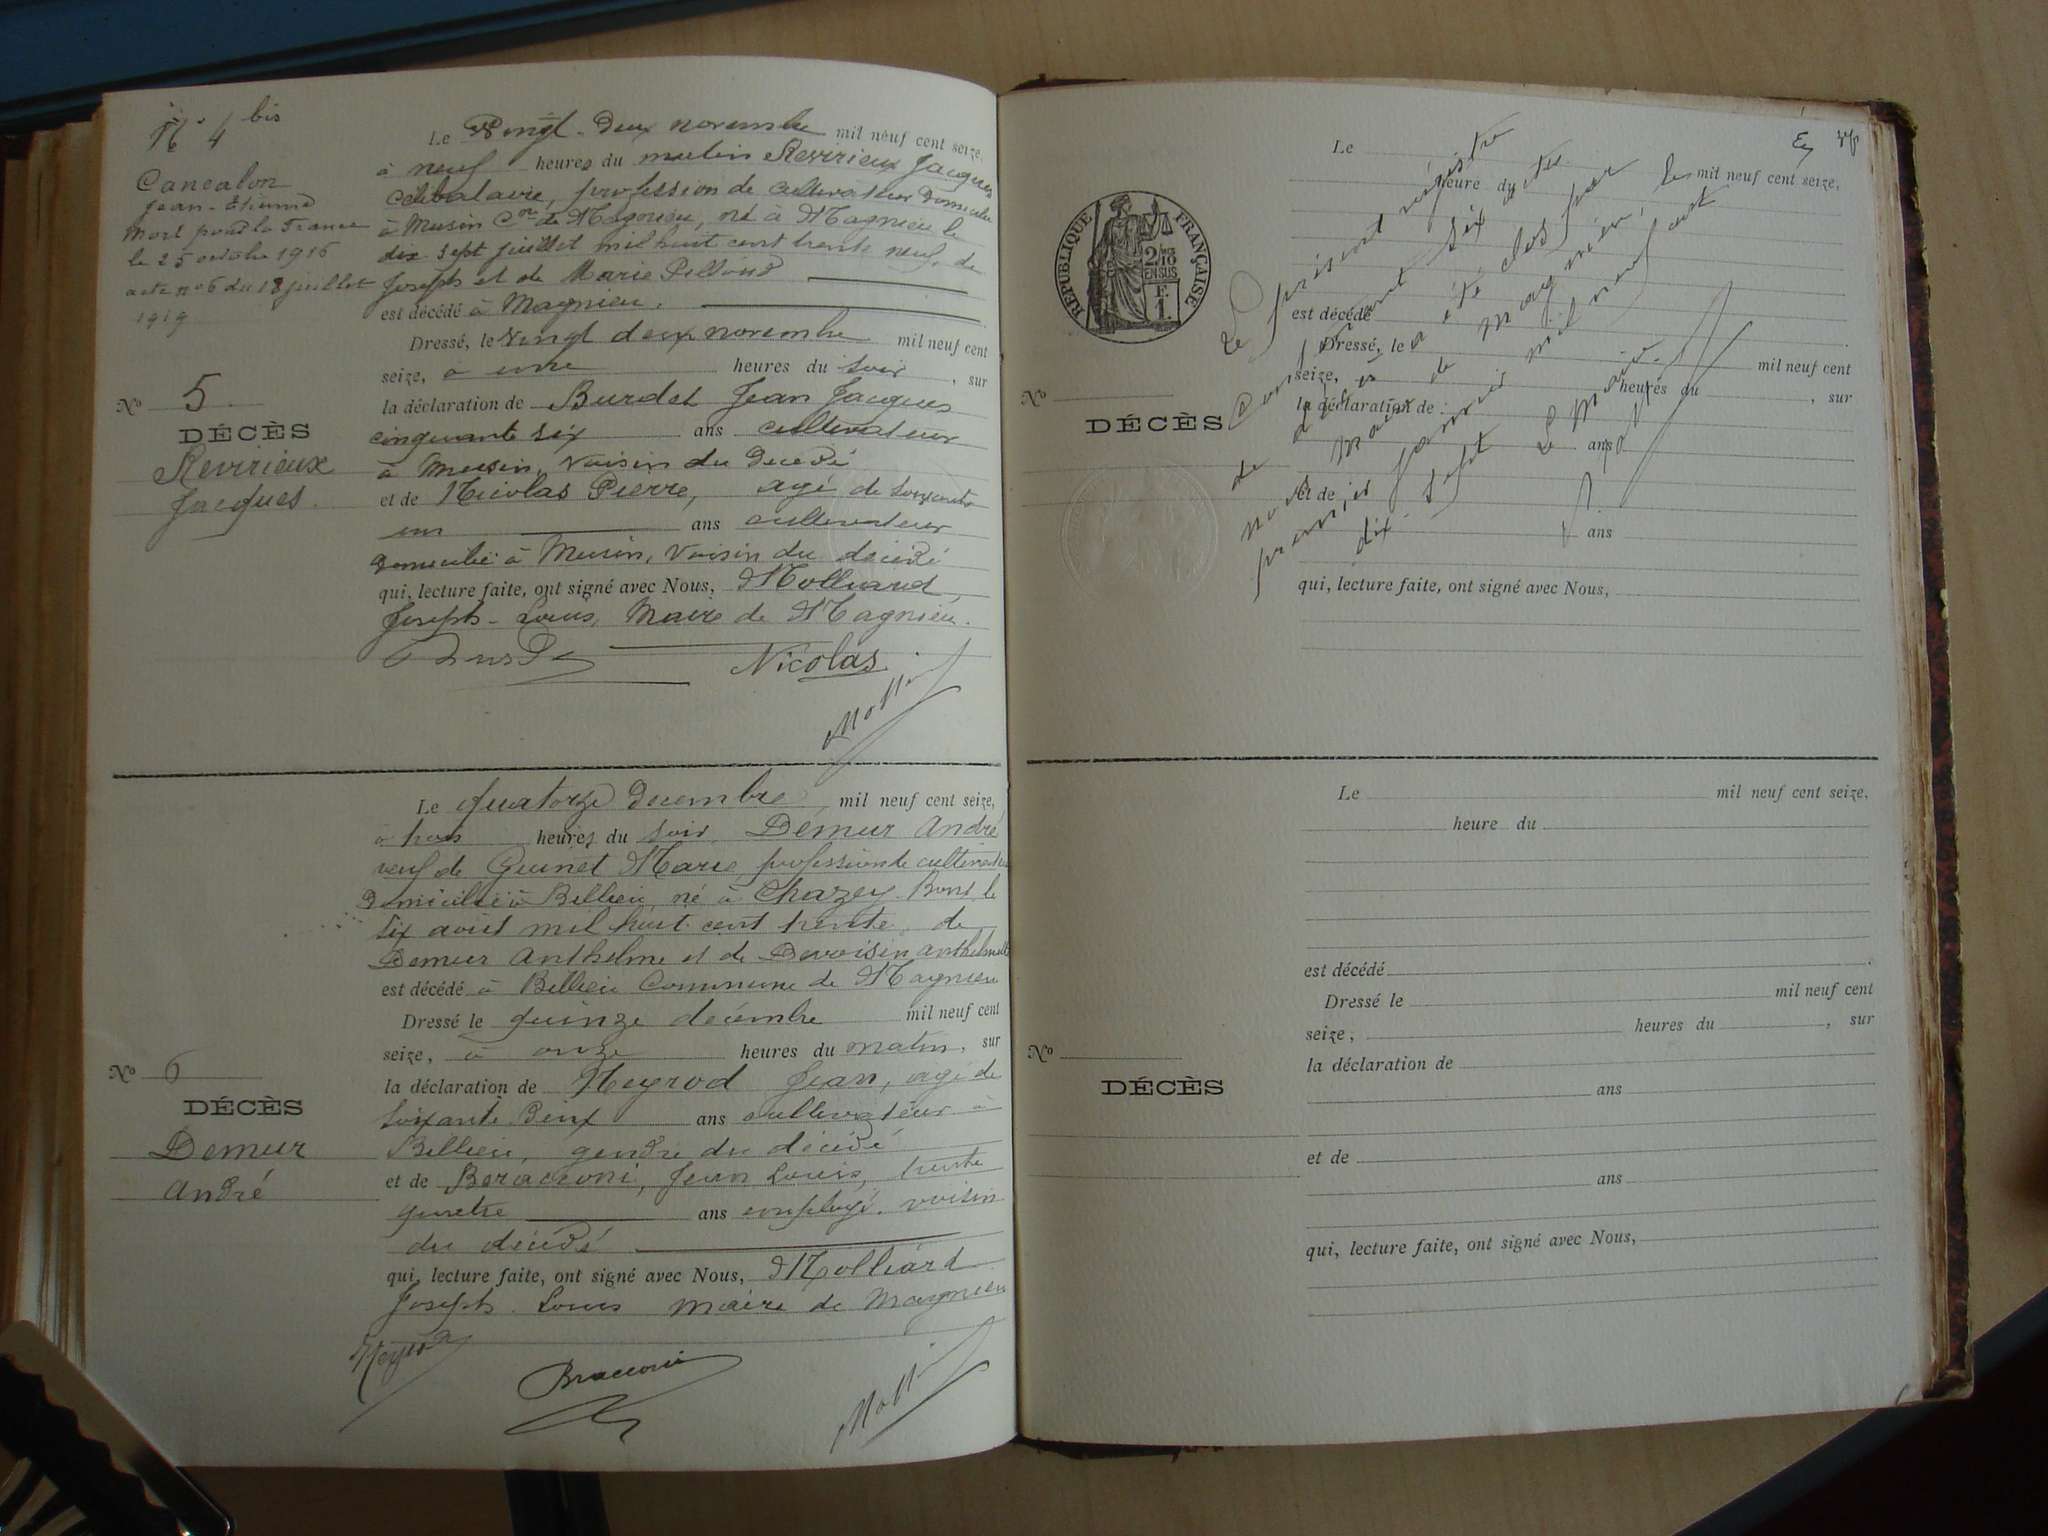 N° 4 bis
Cancalon
Jean-Etienne
Mort pour la France
le 25 octobre 1916
acte n° 6 du 18 juillet
1919
Le Vingt-Deux novembre mil neuf cent seize,
à neuf heures du matin Revirieux Jacques
célibataire, profession de cultivateur Domicilié
à Musin Cne de Magnieu, né à Magnieu le
dix sept juillet mil huit cent trente neuf, de
Joseph et de Marie
est décédé à Magnieu.
Dressé, le vingt deux novembre mil neuf cent
seize, à une heures du soir, sur
la déclaration de Burdet Jean Jacques
cinquante six ans cultivateur
à Musin, Voisin du Décédé
et de Nicolas Pierre, agé de soixante
un ans cultivateur
Domicilié à Musin, Voisin du décédé
qui, lecture faite, ont signé avec Nous, Molliard,
Joseph-Louis, Maire de Magnieu.
Nicolas
N° 5
DÉCÈS
Revirieux
Jacques.
Le quatorze Decembre, mil neuf cent seize,
à trois heures du soir, Demeur André
veuf de Gunet Marie, profession de cultivateur
Domicilié à Billieu, né à Chazey-Bons le
six août mil huit cent trente, de
Demeur Anthelme et de Devoisin Anthelmette
est décédé à Billieu Commune de Magnieu
Dressé le quinze décembre mil neuf cent
seize, à onze heures du matin, sur
la déclaration de Heyrod Jean, agé de
soixante Deux ans cultivateur à
Billieu, gendre du décédé
et de Beracconi, Jean Louis, trente
quatre ans employé. voisin
du décédé
qui, lecture faite, ont signé avec Nous, Molliard
Joseph-Louis maire de Magnieu
Bracconi
N° 6
DÉCÈS
Demeur
André
RÉPUBLIQUE FRANÇAISE
2/10 EN SUS
F.
1.
Le mil neuf cent seize,
heure du
est décédé
Dressé, le mil neuf cent
seize, heures du, sur
la déclaration de
ans
et de
ans
qui, lecture faite, ont signé avec Nous,
N°
DÉCÈS
Le présent régistre
contenant six
décès a été clos par
nous Maire de Magnieu, le
premier janvier mil neuf cent
dix-sept
Le Maire
Le mil neuf cent seize.
heure du
est décédé
Dressé le mil neuf cent
seize, heures du, sur
la déclaration de
ans
et de
ans
qui, lecture faite, ont signé avec Nous,
N°
DÉCÈS